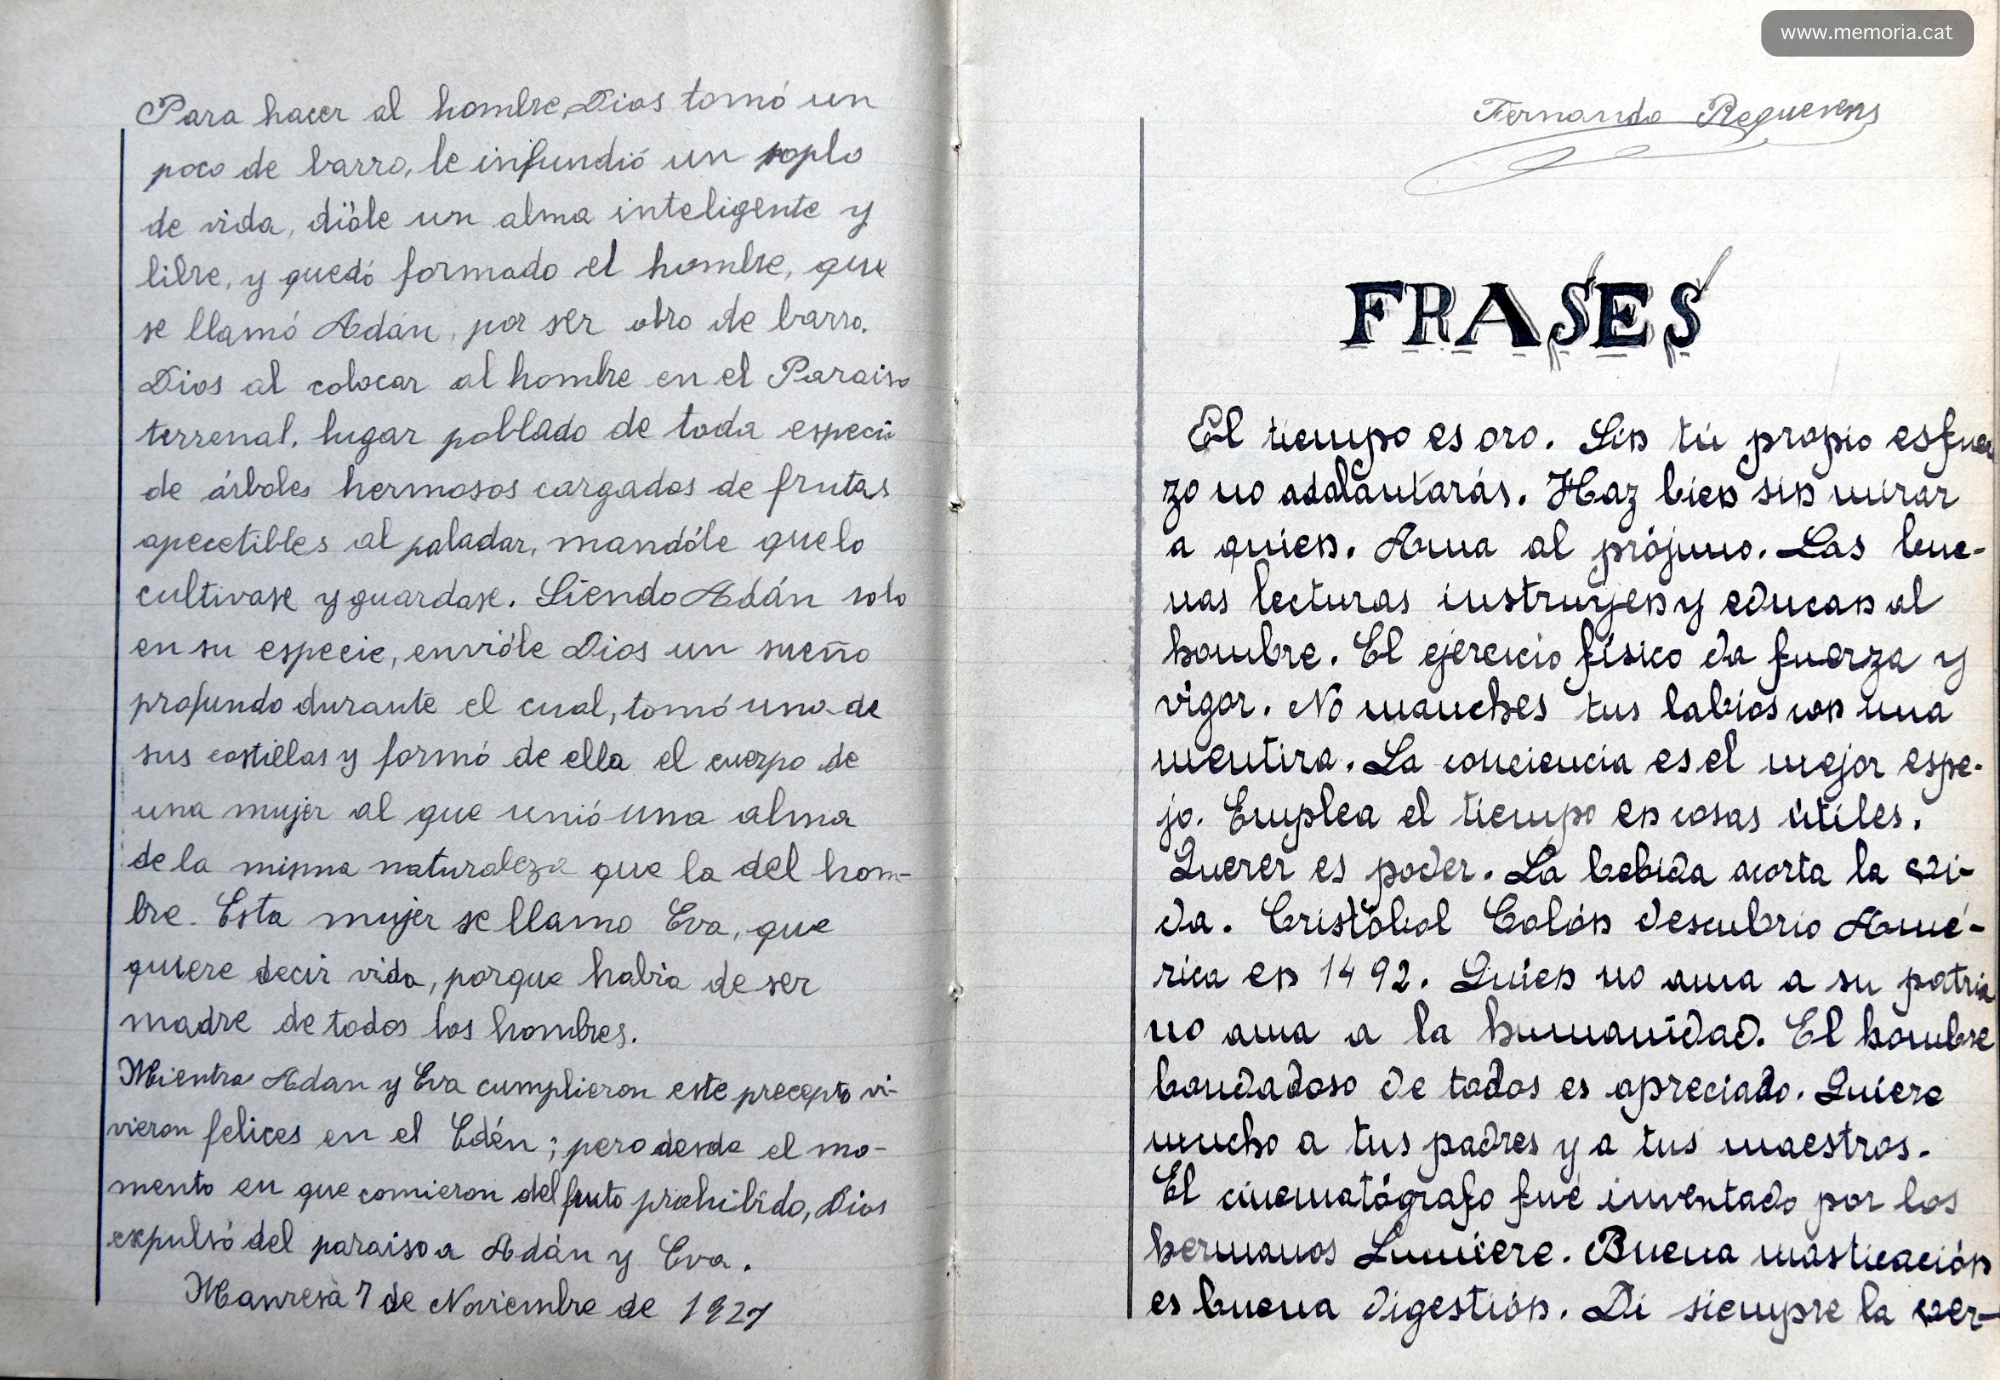 Para hacer al hombre, Dios tomó un
poco de barro, le infundió un soplo
de vida, dióle un alma inteligente y
libre, y quedó formado el hombre, que
se llamó Adán, por ser obro de barro.
Dios al colocar al hombre en el Paraiso
terrenal, lugar poblado de toda especie
de árboles hermosos cargados de frutas
apecetibles al paladar, mandóle que lo
cultivase y guardase. Siendo Adán solo
en su especie, envióle Dios un sueño
profundo durante el cual, tomó una de
sus costillas y formó de ella el cuerpo de
una mujer al que unió una alma
de la misma naturaleza que la del hom-
bre. Esta mujer se llamo Eva, que
quiere decir vida, porque habia de ser
madre de todos los hombres.
Mientra Adan y Eva cumplieron este precepto vi-
vieron felices en el Edén; pero desde el mo-
mento en que comieron del fruto prohibido, Dios
expulsó del paraiso a Adán y Eva.
Manresa 7 de Noviembre de 1927
www.memoria.cat
Fernando Reguerens
FRASES
El tiempo es oro. Sin tú propio esfuer
zo no adalantarás. Haz bien sin mirar
a quien. Ama al prójimo. Las bue-
nas lecturas instruyen y educan al
hombre. El ejercicio físico da fuerza y
vigor. No manches tus labios con una
mentira. La conciencia es el mejor espe-
jo. Emplea el tiempo en cosas útiles.
Querer es poder. La bebida acorta la vi-
da. Cristóbol Colón descubrio Amé-
rica en 1492. Quien no ama a su patria
no ama a la humanidad. El hombre
bondadoso de todos es apreciado. Quiere
mucho a tus padres y a tus maestros.
El cinematógrafo fué inventado por los
hermanos Lumiere. Buena masticación
es buena digestión. Di siempre la ver-